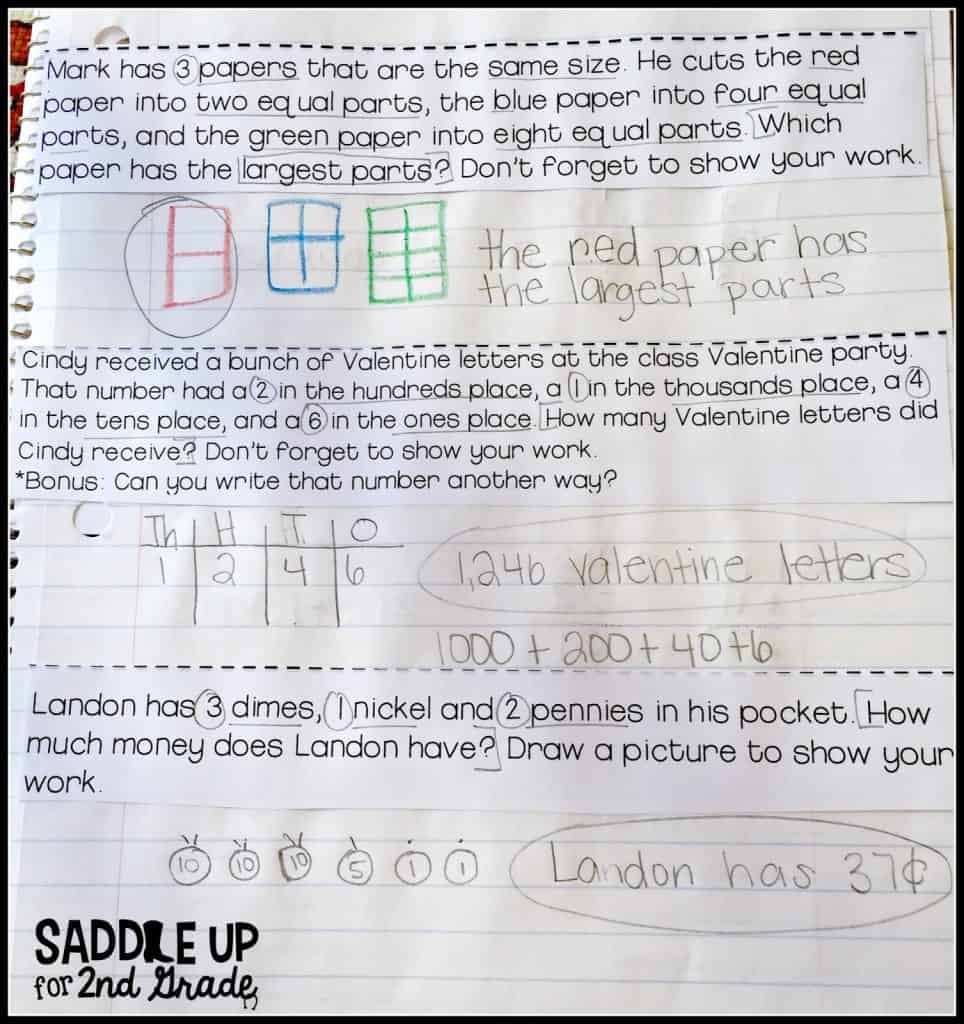 Mark has 3 papers that are the same size. He cuts the red
paper into two equal parts, the blue paper into four equal
parts, and the green paper into eight equal parts. Which
paper has the largest parts? Don't forget to show your work.
the red paper has
the largest parts
Cindy received a bunch of Valentine letters at the class Valentine party.
That number had a 2 in the hundreds place, a 1 in the thousands place, a 4
in the tens place, and a 6 in the ones place. How many Valentine letters did
Cindy receive? Don't forget to show your work.
*Bonus: Can you write that number another way?
Th H T O
1 2 4 6
1,246 valentine letters
1000 + 200 + 40 + 6
Landon has 3 dimes, 1 nickel and 2 pennies in his pocket. How
much money does Landon have? Draw a picture to show your
work.
10 10 10 5 1 1
Landon has 37¢
SADDLE UP
for 2nd Grade